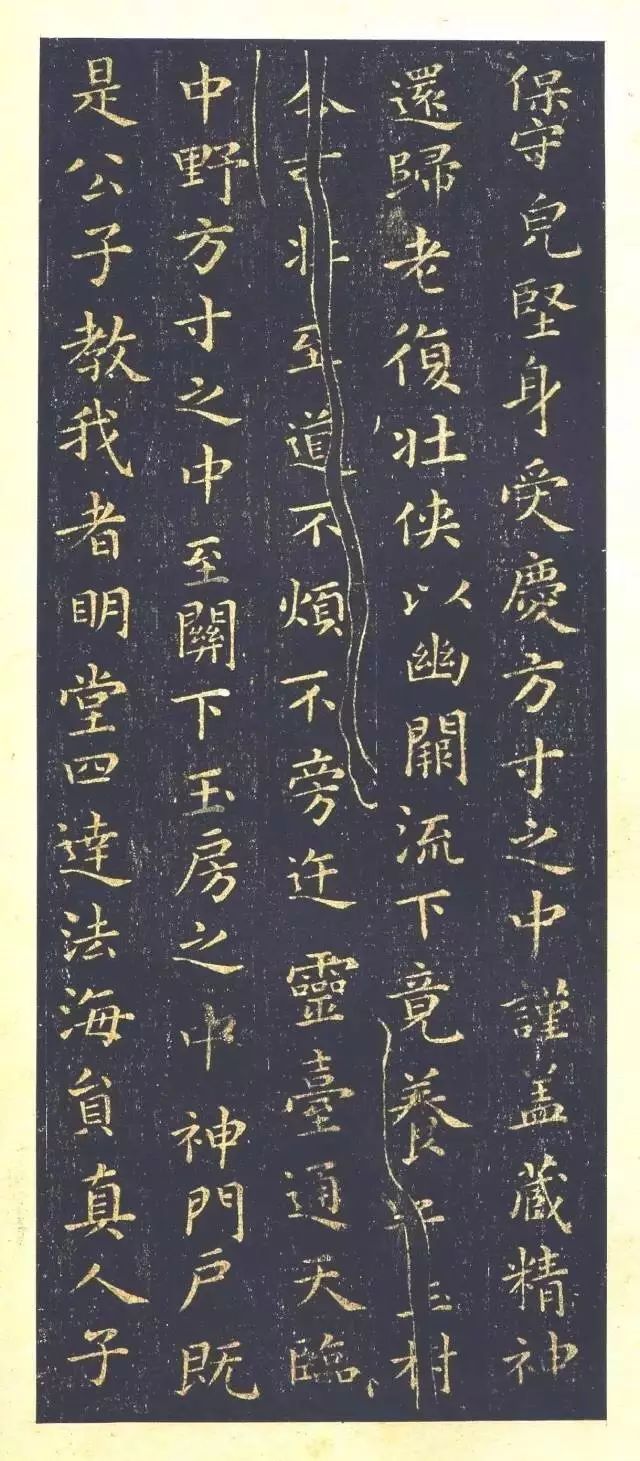 保守皃堅身受慶方寸之中謹盖藏精神
還歸老復壯俠以幽闕流下竟養子玉村
壯至道不煩不旁迕靈臺通天臨
中野方寸之中至關下玉房之中神門戶既
是公子教我者明堂四達法海貟真人子